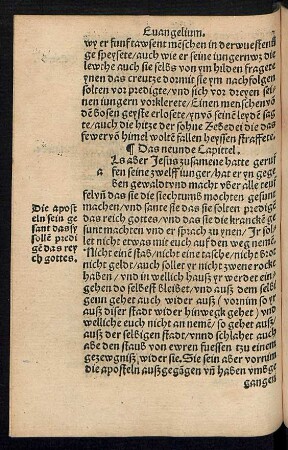 Euangelium.
wy er funff tawsent mēschen in der wuesteniß
ge speysete/ auch wie er seine iungern wz die
lewthe auch sie selbs von ym hilden fragete
ynen das creutze dor mit sie ym nachfolgen
solten vor predigte/ vnd sich vor dreyen sei-
nen iungern vorklerete/ Einen menschen vō
dē bosen geyste erlosete/ yn vō seinē leydē sag
te/ auch die hitze der sohne Zebedei die das
fewer vō himel wolte fallen heyssen straffete.
¶ Das neunde Capittel.
Als aber Jesus zusamene hatte geruf
a fen seine zwelff iunger/ hat er yn gege
ben gewalt vnd macht vber alle teuf
fel vn̄ das sie die siechtums mochten gesūnt
machen/ vnd sante sie das sie solten predigē
das reich gottes/ vnd das sie die krancke ge
sunt machten vnd er sprach zu ynen/ Jr sol-
let nicht etwas mit euch auf den weg neme.
Nicht eine stab/ nicht eine tasche/ nicht Brot
nicht geldt/ auch sollet yr nicht zwene rocke
haben/ vnd in wellich hauß yr werdet ein
gehen do selbest bleibet/ vnd auß dem selbi
genn gehet auch wider auß (vornim so yr
auß diser stadt wider hinwegk gehet) vnd
welliche euch nicht an nemē/ so gehet auß/
auß der selbigen stadt/ vnnd schlaher auch
abe den staub von ewren fuessen tzu einem
gezewgniß wider sie. Sie sein aber vornim
die aposteln außgegāgen vn̄ haben vmbge
gangen
Die apost
eln sein ge
sant das sy
sollē predi
gē das rey
ch gottes.